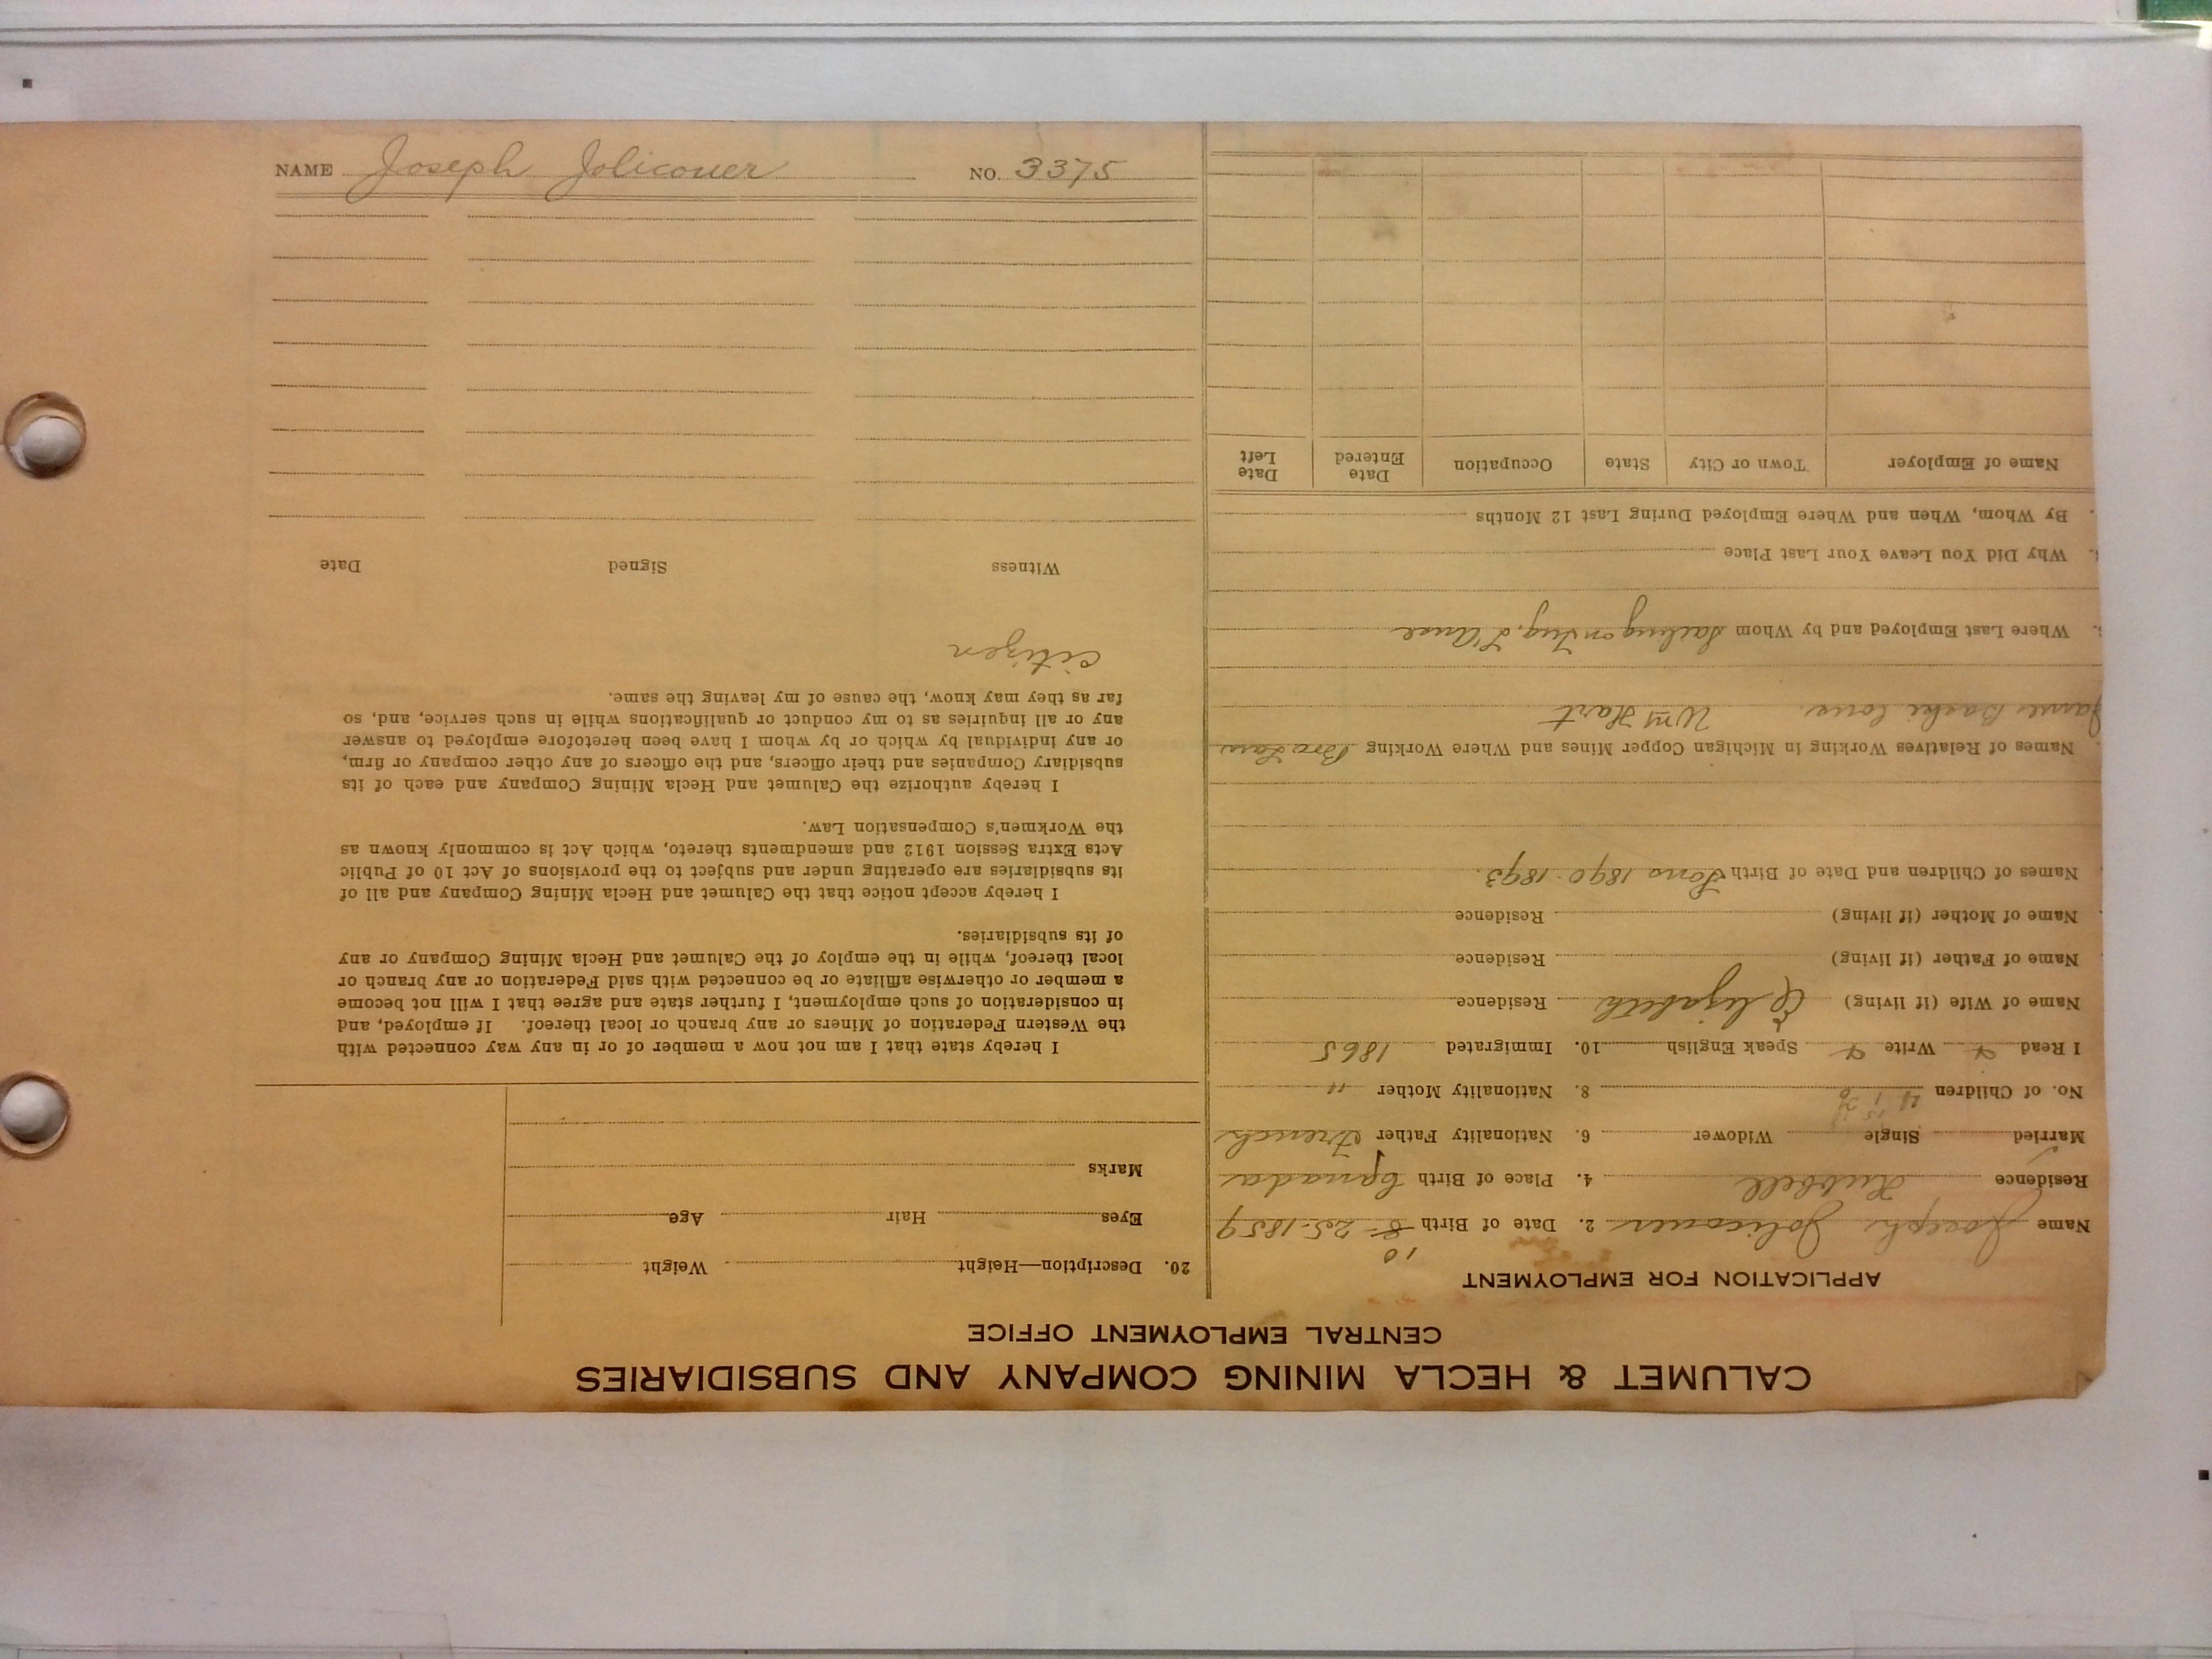 CALUMET & HECLA MINING COMPANY AND SUBSIDIARIES
CENTRAL EMPLOYMENT OFFICE
APPLICATION FOR EMPLOYMENT
10
Name Joseph Jolicouer 2. Date of Birth 8-25-1859
Residence Hubbell 4. Place of Birth Canada
Married Single Widower 6. Nationality Father French
No. of Children 4 8. Nationality Mother "
I Read Write Speak English 10. Immigrated 1865
Name of Wife (if living) Elizabeth Residence
Name of Father (if living) Residence
Name of Mother (if living) Residence
Names of Children and Date of Birth Sons 1890-1893.
Names of Relatives Working in Michigan Copper Mines and Where Working Bro Law
James Wm Hart
Where Last Employed and by Whom Sailing on Tug, L'Anse
Why Did You Leave Your Last Place
By Whom, When and Where Employed During Last 12 Months
Name of Employer Town or City State Occupation Date Entered Date Left
20. Description—Height Weight
Eyes Hair Age
Marks
I hereby state that I am not now a member of or in any way connected with
the Western Federation of Miners or any branch or local thereof. If employed, and
in consideration of such employment, I further state and agree that I will not become
a member or otherwise affiliate or be connected with said Federation or any branch or
local thereof, while in the employ of the Calumet and Hecla Mining Company or any
of its subsidiaries.
I hereby accept notice that the Calumet and Hecla Mining Company and all of
its subsidiaries are operating under and subject to the provisions of Act 10 of Public
Acts Extra Session 1912 and amendments thereto, which Act is commonly known as
the Workmen's Compensation Law.
I hereby authorize the Calumet and Hecla Mining Company and each of its
subsidiary Companies and their officers, and the officers of any other company or firm,
or any individual by which or by whom I have been heretofore employed to answer
any or all inquiries as to my conduct or qualifications while in such service, and, so
far as they may know, the cause of my leaving the same.
citizen
Witness Signed Date
NAME Joseph Jolicouer NO. 3375